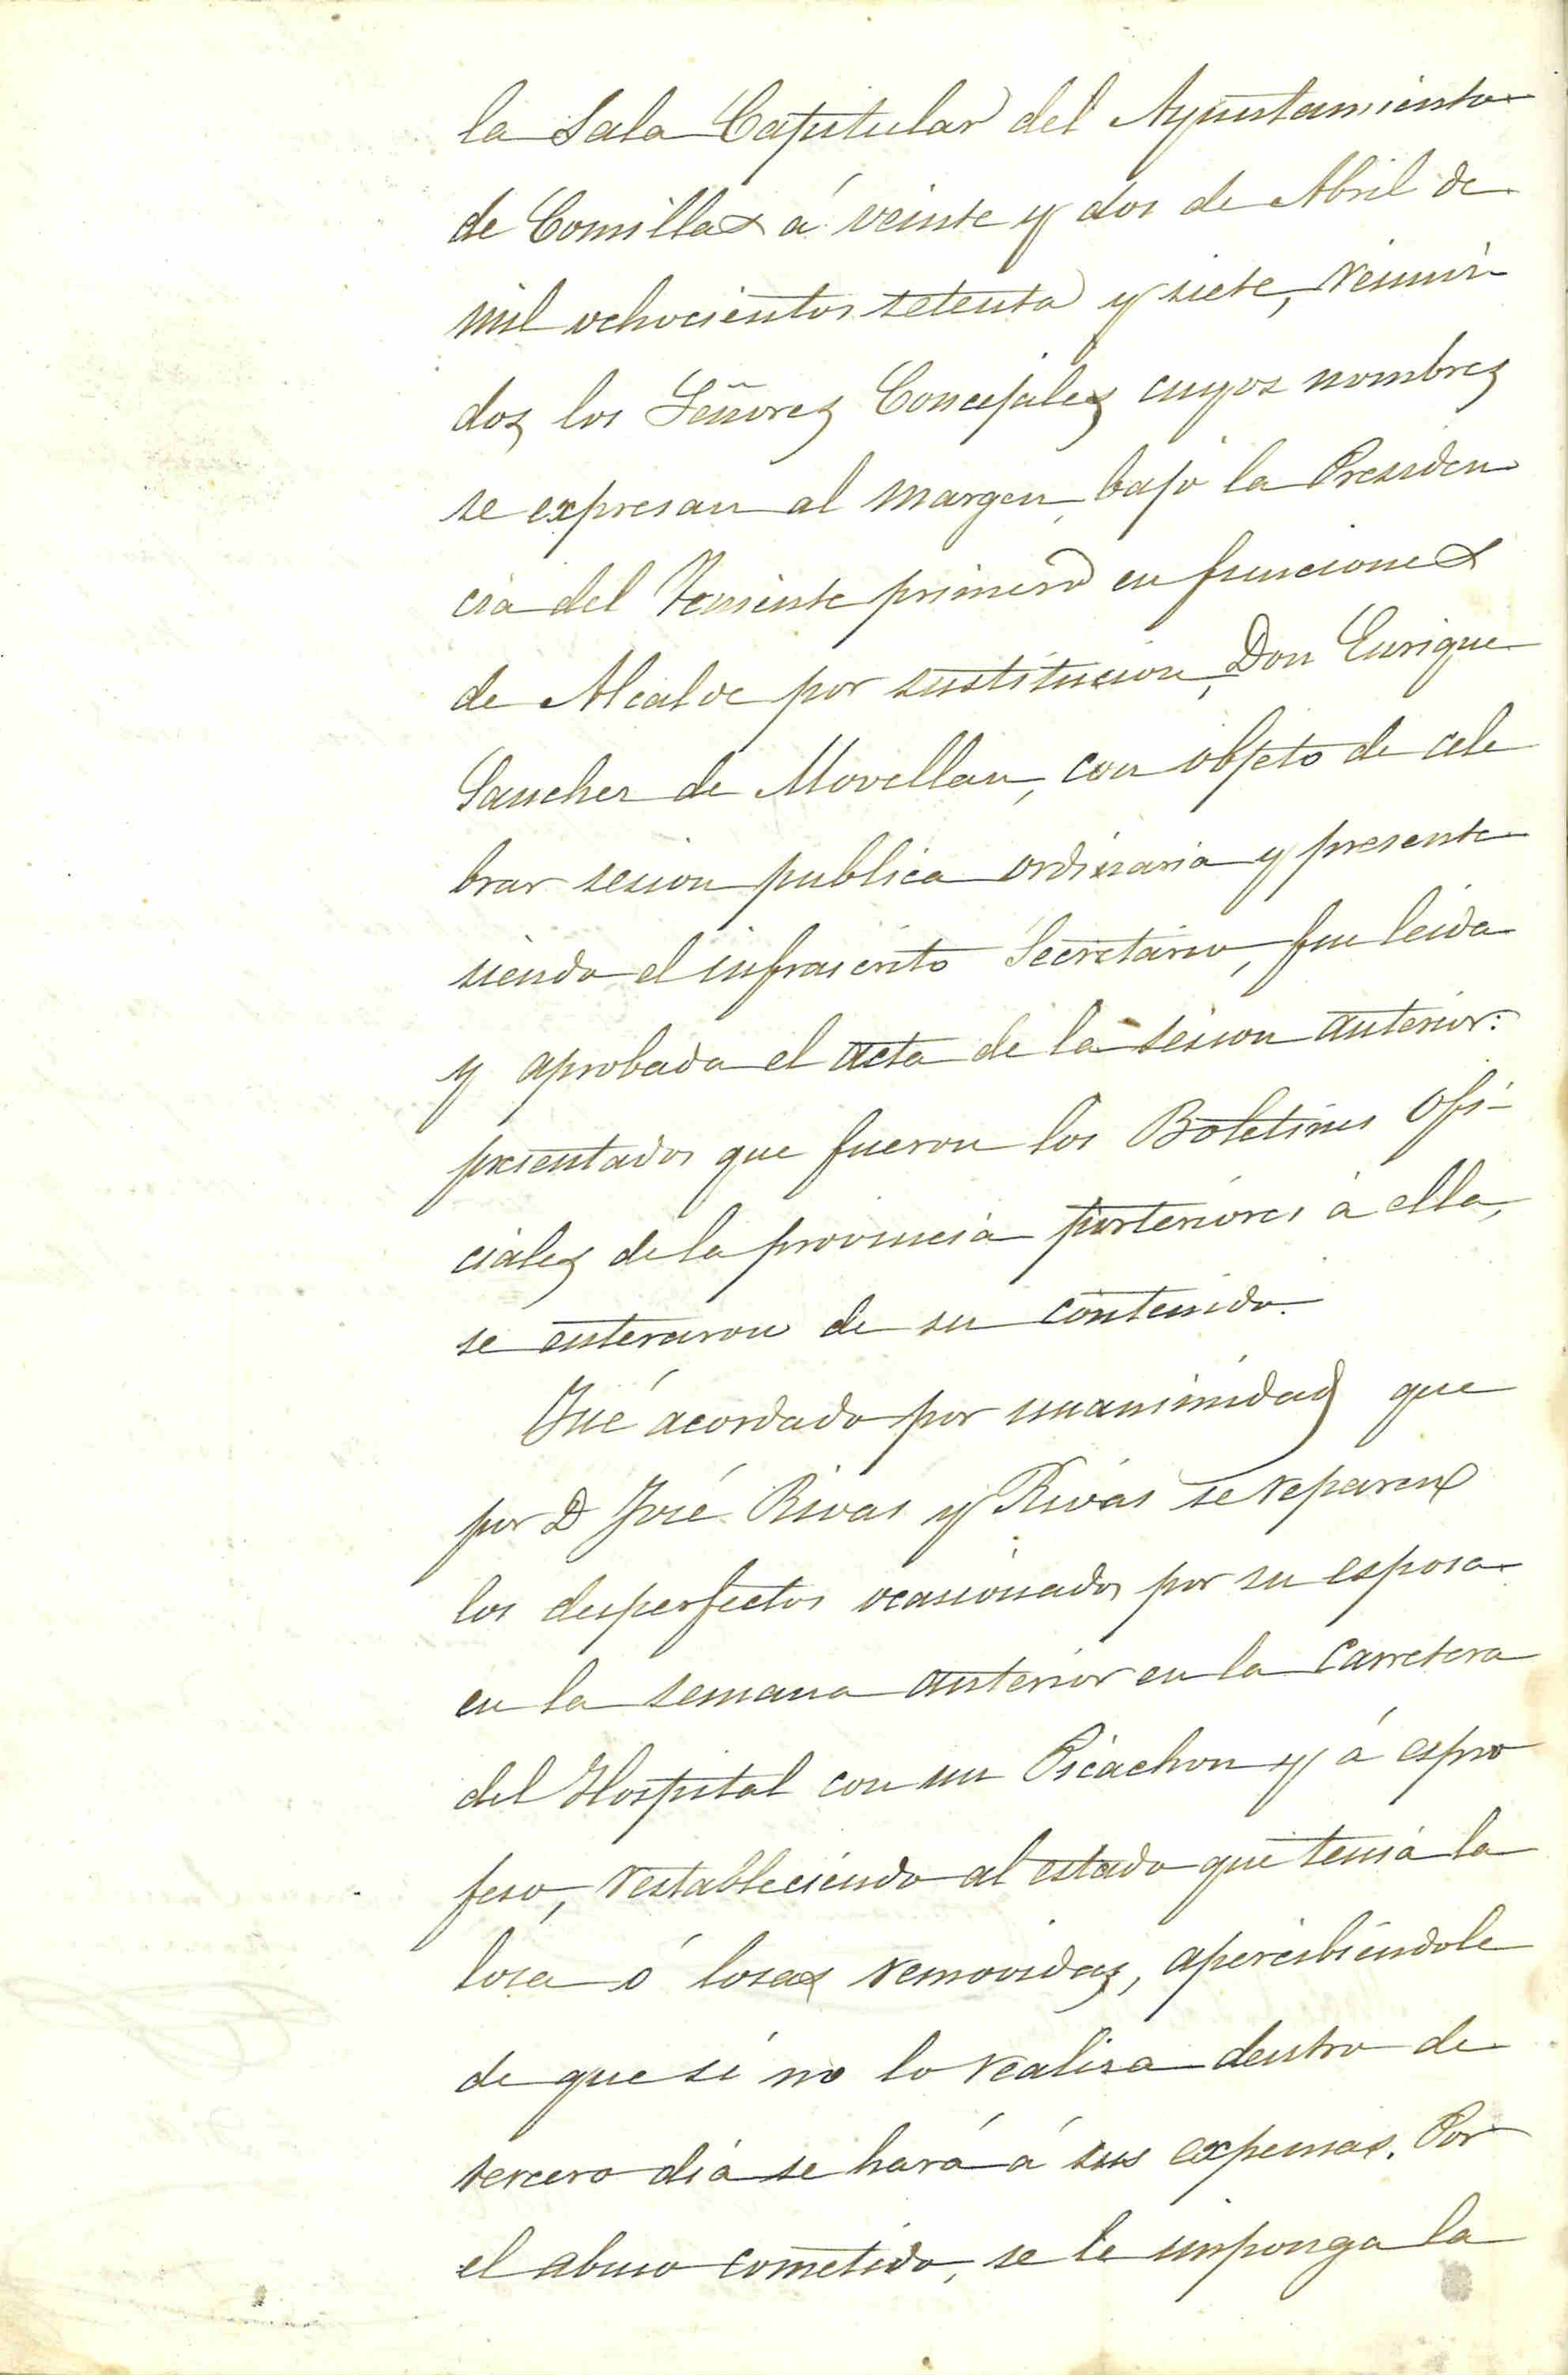 la Sala Capitular del Ayuntamiento
de Comillas á veinte y dos de Abril de
mil ochocientos setenta y siete, reuni
dos los Señores Concejales cuyos nombres
se expresan al margen, bajo la Presiden
cia del Teniente primero en funciones
de Alcalde por sustitucion, Don Enrique
Sanchez de Movellan, con objeto de cele
brar sesion publica ordinaria y presente
siendo el infrascrito Secretario, fue leida
y aprobada el acta de la sesion anterior:
presentados que fueron los Boletines Ofi-
ciales de la provincia posteriores á ella,
se enteraron de su contenido.
Fué acordado por unanimidad que
por D José Rivas y Rivas se reparen
los desperfectos ocasionados por su esposa
en la semana anterior en la carretera
del Hospital con un Picachon y á espro
feso, restableciendo al estado que tenia la
losa ó losas removidas, apercibiéndole
de que si no lo realiza dentro de
tercero dia se hará á sus expensas. Por
el abuso cometido, se le imponga la